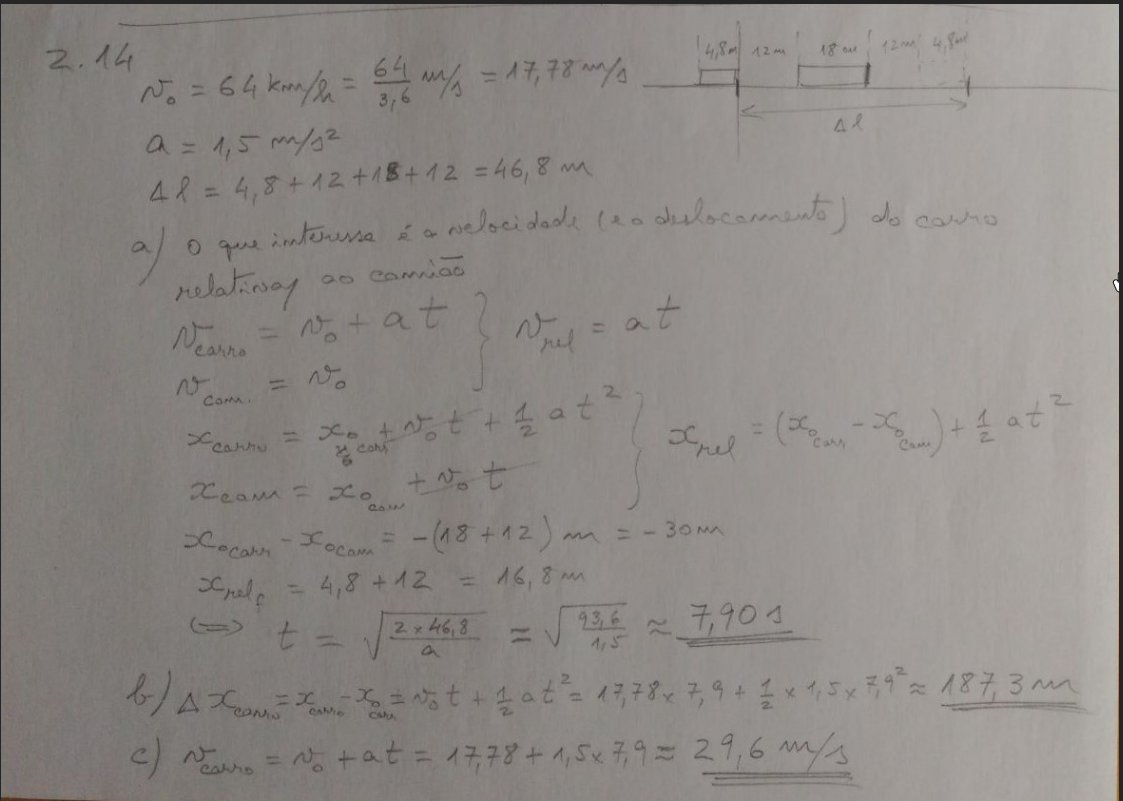 2.14
v₀ = 64 km/h = 64/3,6 m/s = 17,78 m/s
4,8m 12m 18m 12m 4,8m
Δl
a = 1,5 m/s²
Δl = 4,8 + 12 + 18 + 12 = 46,8 m
a) O que interessa é a velocidade (e o deslocamento) do carro
relativas ao camião
v_carro = v₀ + a t } v_rel = a t
v_cam. = v₀
x_carro = x₀_carr + v₀ t + 1/2 a t² } x_rel = (x₀_carr - x₀_cam) + 1/2 a t²
x_cam = x₀_cam + v₀ t
x₀_carr - x₀_cam = -(18 + 12) m = -30 m
x_rel_f = 4,8 + 12 = 16,8 m
⇔ t = √(2 × 46,8 / a) = √(93,6 / 1,5) ≈ 7,90 s
b) Δx_carro = x_carro - x₀_carr = v₀ t + 1/2 a t² = 17,78 × 7,9 + 1/2 × 1,5 × 7,9² ≈ 187,3 m
c) v_carro = v₀ + a t = 17,78 + 1,5 × 7,9 ≈ 29,6 m/s